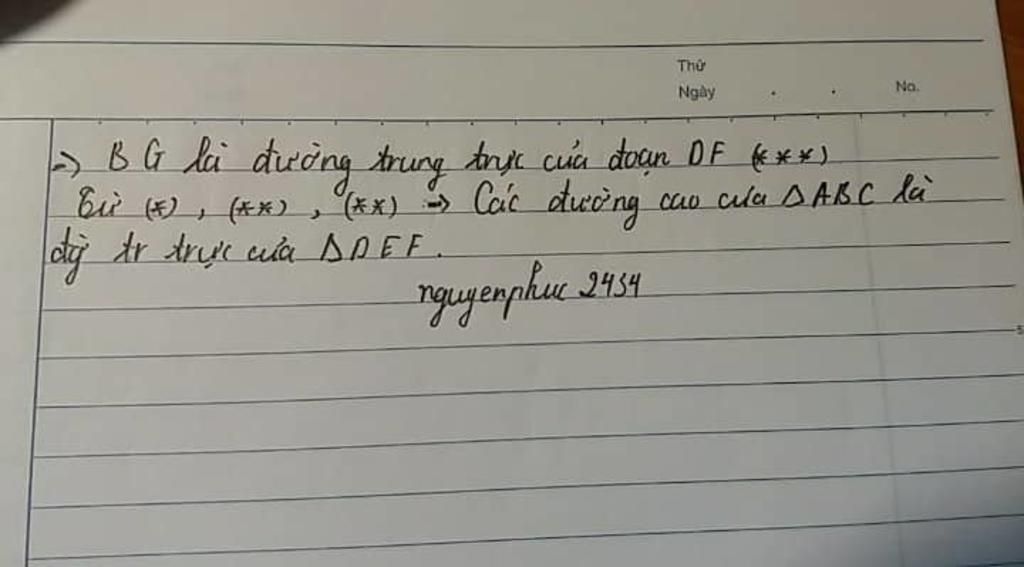 Thứ
Ngày . . No.
=> BG là đường trung trực của đoạn DF (***)
Từ (*), (**), (**) => Các đường cao của ΔABC là
đg tr trực của ΔDEF.
nguyenphuc 2434
5